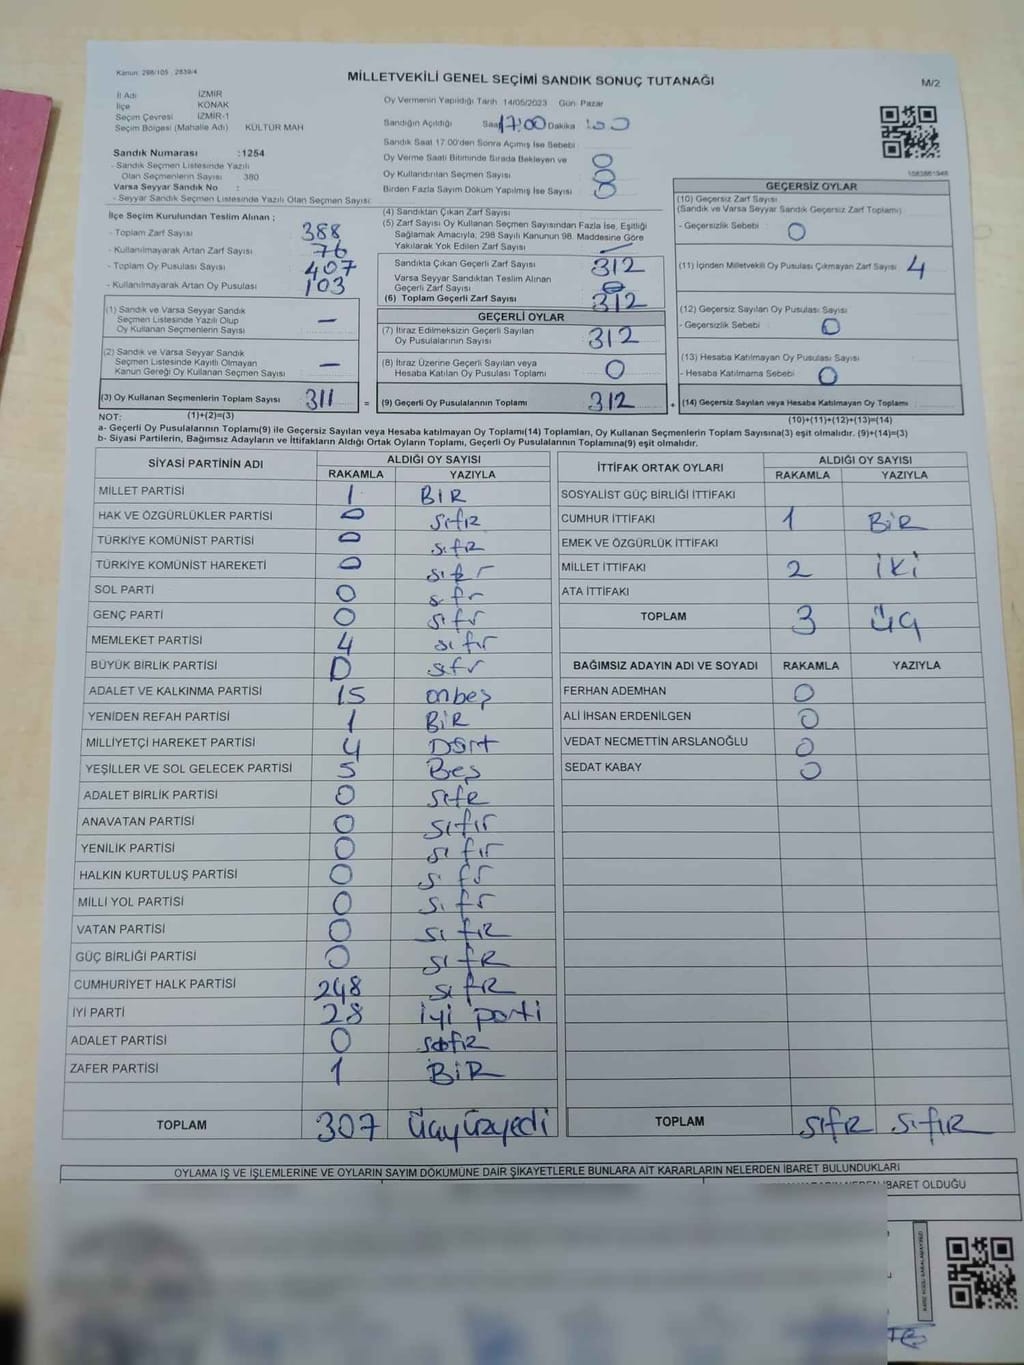 Kanun: 298/105 - 2839/4
MİLLETVEKİLİ GENEL SEÇİMİ SANDIK SONUÇ TUTANAĞI
M/2
İl Adı İZMİR
İlçe KONAK
Seçim Çevresi İZMİR-1
Seçim Bölgesi (Mahalle Adı) KÜLTÜR MAH
Sandık Numarası :1254
- Sandık Seçmen Listesinde Yazılı
Olan Seçmenlerin Sayısı 380
Varsa Seyyar Sandık No :
- Seyyar Sandık Seçmen Listesinde Yazılı Olan Seçmen Sayısı:
Oy Vermenin Yapıldığı Tarih 14/05/2023 Gün: Pazar
Sandığın Açıldığı Saat 17:00 Dakika
Sandık Saat 17:00'den Sonra Açımış İse Sebebi
Oy Verme Saati Bitiminde Sırada Bekleyen ve 0
Oy Kullandırılan Seçmen Sayısı 0
Birden Fazla Sayım Döküm Yapılmış İse Sayısı 0
1583861948
İlçe Seçim Kurulundan Teslim Alınan ;
- Toplam Zarf Sayısı 388
- Kullanılmayarak Artan Zarf Sayısı 76
- Toplam Oy Pusulası Sayısı 407
- Kullanılmayarak Artan Oy Pusulası 103
(1) Sandık ve Varsa Seyyar Sandık
Seçmen Listesinde Yazılı Olup
Oy Kullanan Seçmenlerin Sayısı –
(2) Sandık ve Varsa Seyyar Sandık
Seçmen Listesinde Kayıtlı Olmayan
Kanun Gereği Oy Kullanan Seçmen Sayısı –
(3) Oy Kullanan Seçmenlerin Toplam Sayısı 311 =
(4) Sandıktan Çıkan Zarf Sayısı
(5) Zarf Sayısı Oy Kullanan Seçmen Sayısından Fazla İse, Eşitliği
Sağlamak Amacıyla, 298 Sayılı Kanunun 98. Maddesine Göre
Yakılarak Yok Edilen Zarf Sayısı
Sandıkta Çıkan Geçerli Zarf Sayısı 312
Varsa Seyyar Sandıktan Teslim Alınan
Geçerli Zarf Sayısı 0
(6) Toplam Geçerli Zarf Sayısı 312
GEÇERLİ OYLAR
(7) İtiraz Edilmeksizin Geçerli Sayılan
Oy Pusulalarının Sayısı 312
(8) İtiraz Üzerine Geçerli Sayılan veya
Hesaba Katılan Oy Pusulası Toplamı 0
(9) Geçerli Oy Pusulalarının Toplamı 312 +
GEÇERSİZ OYLAR
(10) Geçersiz Zarf Sayısı
(Sandık ve Varsa Seyyar Sandık Geçersiz Zarf Toplamı)
- Geçersizlik Sebebi 0
(11) İçinden Milletvekili Oy Pusulası Çıkmayan Zarf Sayısı 4
(12) Geçersiz Sayılan Oy Pusulası Sayısı
- Geçersizlik Sebebi 0
(13) Hesaba Katılmayan Oy Pusulası Sayısı
- Hesaba Katılmama Sebebi 0
(14) Geçersiz Sayılan veya Hesaba Katılmayan Oy Toplamı
NOT: (1)+(2)=(3) (10)+(11)+(12)+(13)=(14)
a- Geçerli Oy Pusulalarının Toplamı(9) ile Geçersiz Sayılan veya Hesaba katılmayan Oy Toplamı(14) Toplamları, Oy Kullanan Seçmenlerin Toplam Sayısına(3) eşit olmalıdır. (9)+(14)=(3)
b- Siyasi Partilerin, Bağımsız Adayların ve İttifakların Aldığı Ortak Oyların Toplamı, Geçerli Oy Pusulalarının Toplamına(9) eşit olmalıdır.
SİYASİ PARTİNİN ADI ALDIĞI OY SAYISI
RAKAMLA YAZIYLA
MİLLET PARTİSİ 1 BİR
HAK VE ÖZGÜRLÜKLER PARTİSİ 0 sıfır
TÜRKİYE KOMÜNİST PARTİSİ 0 sıfır
TÜRKİYE KOMÜNİST HAREKETİ 0 sıfır
SOL PARTİ 0 sıfr
GENÇ PARTİ 0 sıfr
MEMLEKET PARTİSİ 4 sıfır
BÜYÜK BİRLİK PARTİSİ 0 sıfr
ADALET VE KALKINMA PARTİSİ 15 onbeş
YENİDEN REFAH PARTİSİ 1 BİR
MİLLİYETÇİ HAREKET PARTİSİ 4 Dört
YEŞİLLER VE SOL GELECEK PARTİSİ 5 Beş
ADALET BİRLİK PARTİSİ 0 sıfR
ANAVATAN PARTİSİ 0 sıfır
YENİLİK PARTİSİ 0 sıfır
HALKIN KURTULUŞ PARTİSİ 0 sıfr
MİLLİ YOL PARTİSİ 0 sıfr
VATAN PARTİSİ 0 sıfıR
GÜÇ BİRLİĞİ PARTİSİ 0 sıfR
CUMHURİYET HALK PARTİSİ 248 sıfR
İYİ PARTİ 28 iyi parti
ADALET PARTİSİ 0 sıfır
ZAFER PARTİSİ 1 BİR
TOPLAM 307 üçyüzyedi
İTTİFAK ORTAK OYLARI ALDIĞI OY SAYISI
RAKAMLA YAZIYLA
SOSYALİST GÜÇ BİRLİĞİ İTTİFAKI
CUMHUR İTTİFAKI 1 BİR
EMEK VE ÖZGÜRLÜK İTTİFAKI
MİLLET İTTİFAKI 2 İKİ
ATA İTTİFAKI
TOPLAM 3 üç
BAĞIMSIZ ADAYIN ADI VE SOYADI RAKAMLA YAZIYLA
FERHAN ADEMHAN 0
ALİ İHSAN ERDENİLGEN 0
VEDAT NECMETTİN ARSLANOĞLU 0
SEDAT KABAY 0
TOPLAM SıfR SıfıR
OYLAMA İŞ VE İŞLEMLERİNE VE OYLARIN SAYIM DÖKÜMÜNE DAİR ŞİKAYETLERLE BUNLARA AİT KARARLARIN NELERDEN İBARET BULUNDUKLARI
İBARET OLDUĞU